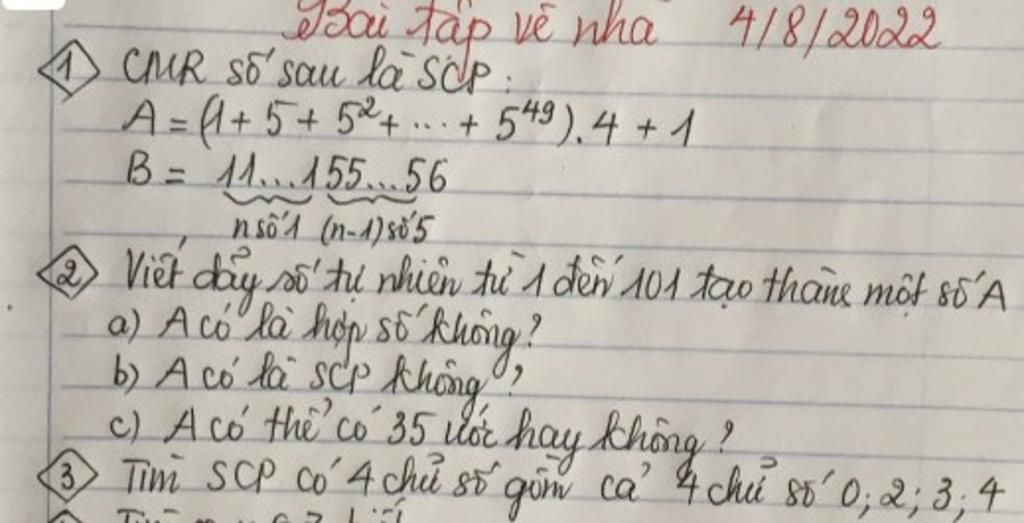 Bài tập về nhà 4/8/2022
1 CMR số sau là SCP:
A = (1 + 5 + 5² + ... + 5⁴⁹).4 + 1
B = 11...155...56
n số 1 (n-1) số 5
2 Viết dãy số tự nhiên từ 1 đến 101 tạo thành một số A
a) A có là hợp số không?
b) A có là SCP không?
c) A có thể có 35 ước hay không?
3 Tìm SCP có 4 chữ số gồm cả 4 chữ số 0; 2; 3; 4